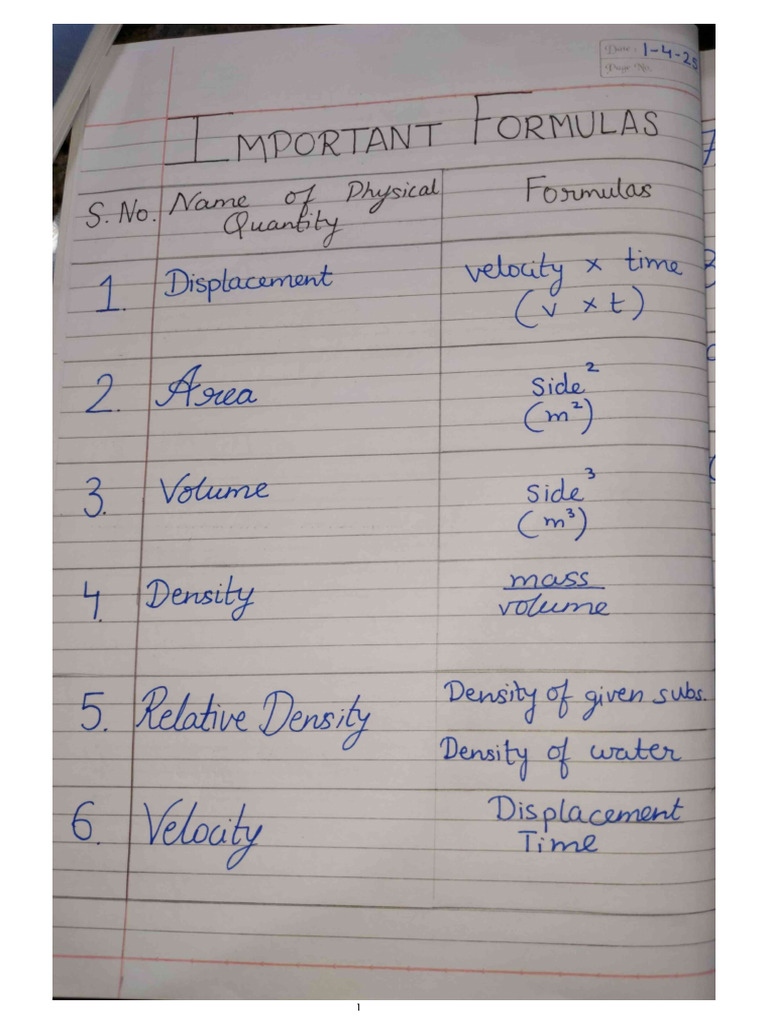 Date : 1-4-25
Page No.
IMPORTANT FORMULAS
S. No. Name of Physical Quantity Formulas
1. Displacement velocity × time
(v × t)
2. Area side²
(m²)
3. Volume side³
(m³)
4. Density mass
volume
5. Relative Density Density of given subs.
Density of water
6. Velocity Displacement
Time
1